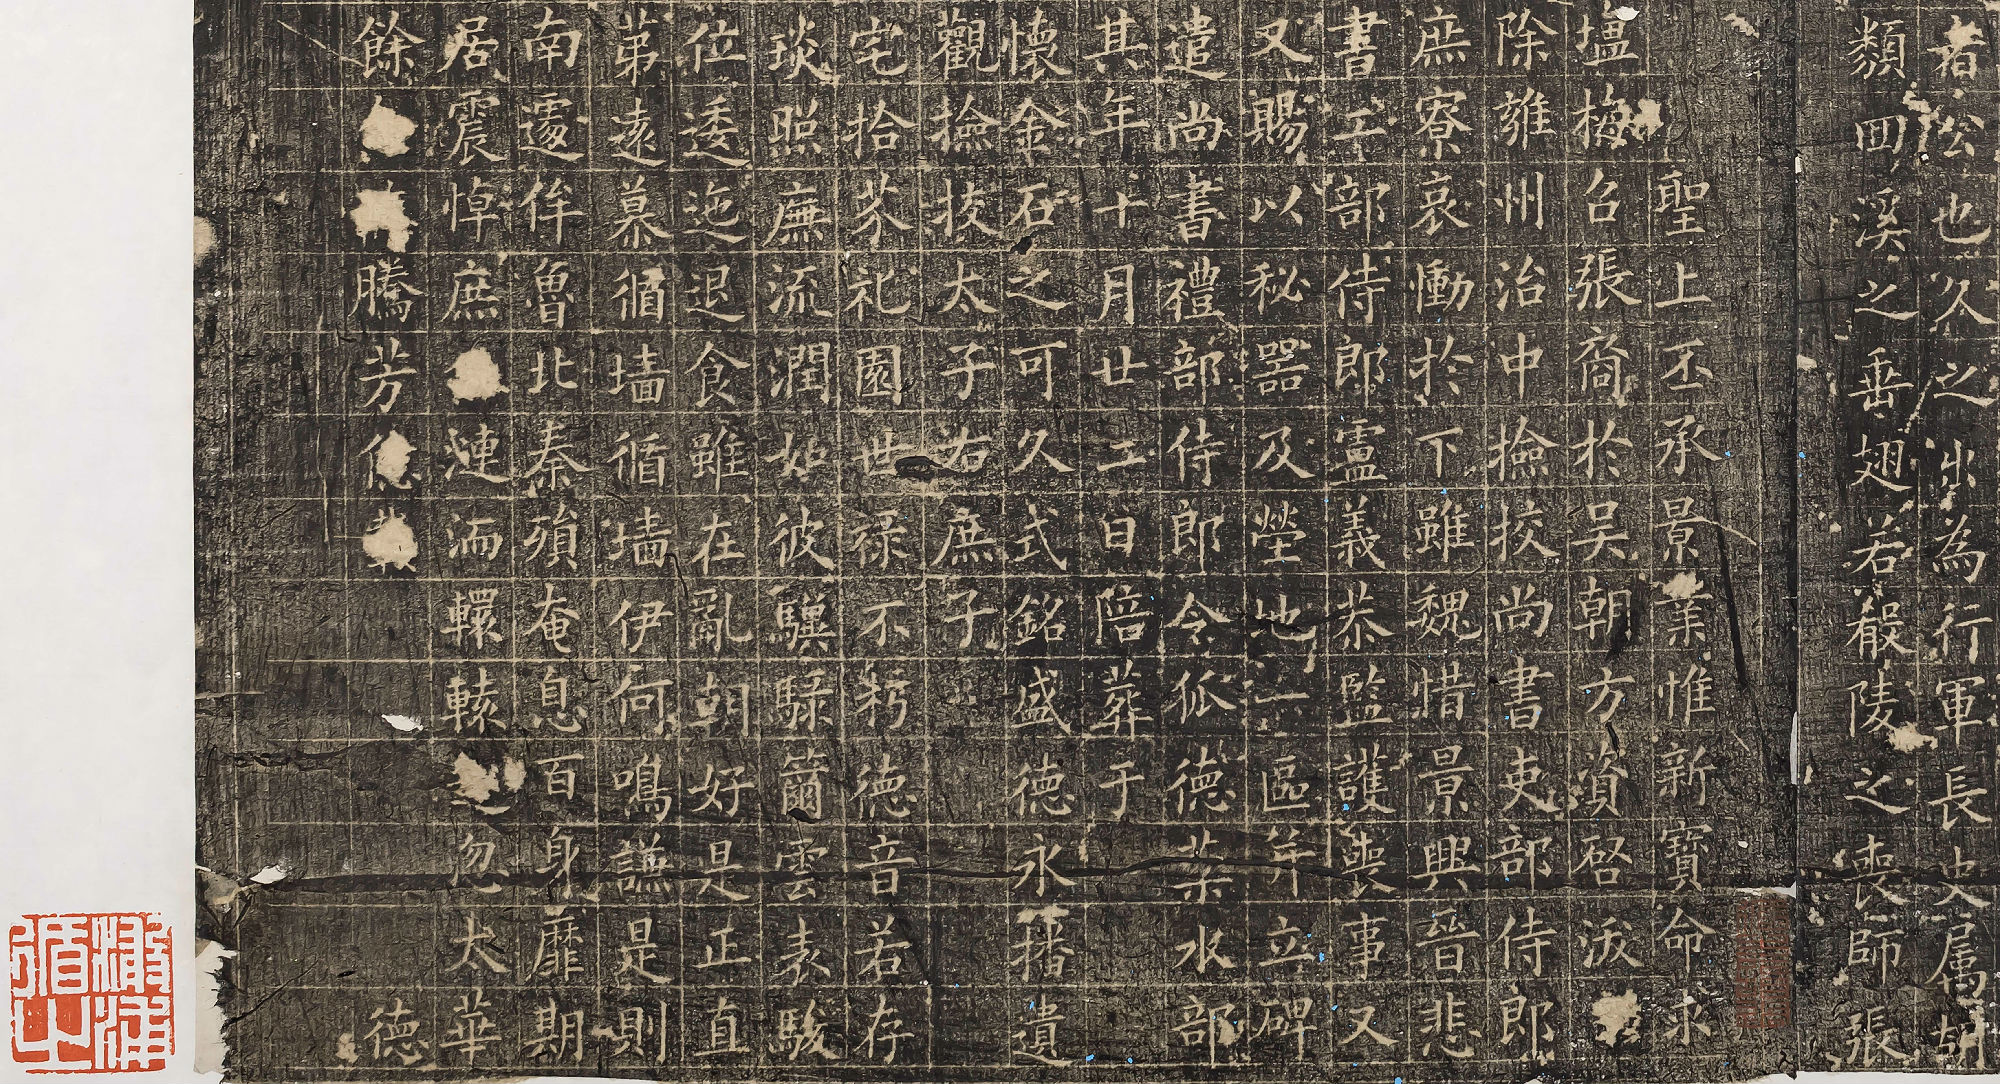 者公也久之出為行軍長史属胡
類田溪之垂翅若殽陵之喪師張
聖上丕承景業惟新寶命求
塩梅召張裔於吴朝方資啓沃
除雍州治中撿挍尚書吏部侍郎
庶寮哀慟於下雖魏惜景興晉悲
書工部侍郎盧義恭監護喪事又
又賜以秘器及塋地一區并立碑
遣尚書禮部侍郎令狐德棻水部
其年十月廿二日陪葬于
懷金石之可久式銘盛德永播遺
觀撿挍太子右庶子
宅拾芥祀園世禄不朽德音若存
琰照廡流潤如彼驥騄籋雲表駿
位逶迤退食雖在亂朝好是正直
第遠慕循墙循墙伊何鳴謙是則
南遽侔魯北秦殞奄息百身靡期
居震悼庶漣洏轘轅忽太華
餘騰芳德
循之